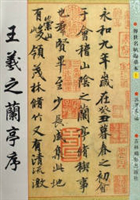 永和九年歲在癸丑暮春之初會
于會稽山陰之蘭亭脩稧事
也羣賢畢至少長咸集此地
崇山
有峻領茂林脩竹又有清流激
王羲之蘭亭序